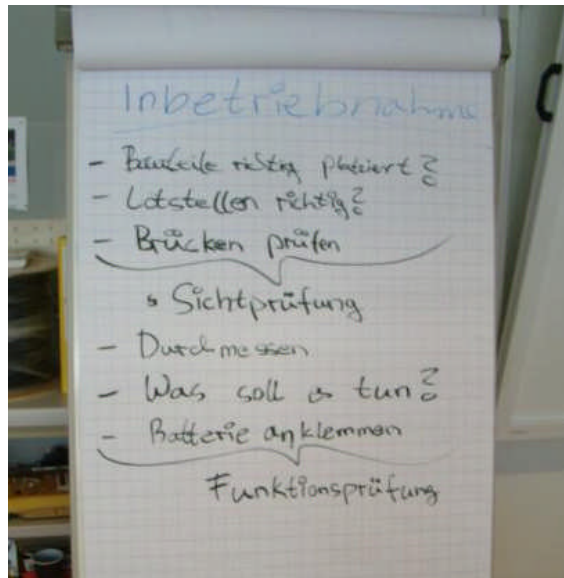 Inbetriebnahme
- Bauteile richtig platziert?
- Lötstellen richtig?
- Brücken prüfen
Sichtprüfung
- Durchmessen
- Was soll es tun?
- Batterie anklemmen
Funktionsprüfung